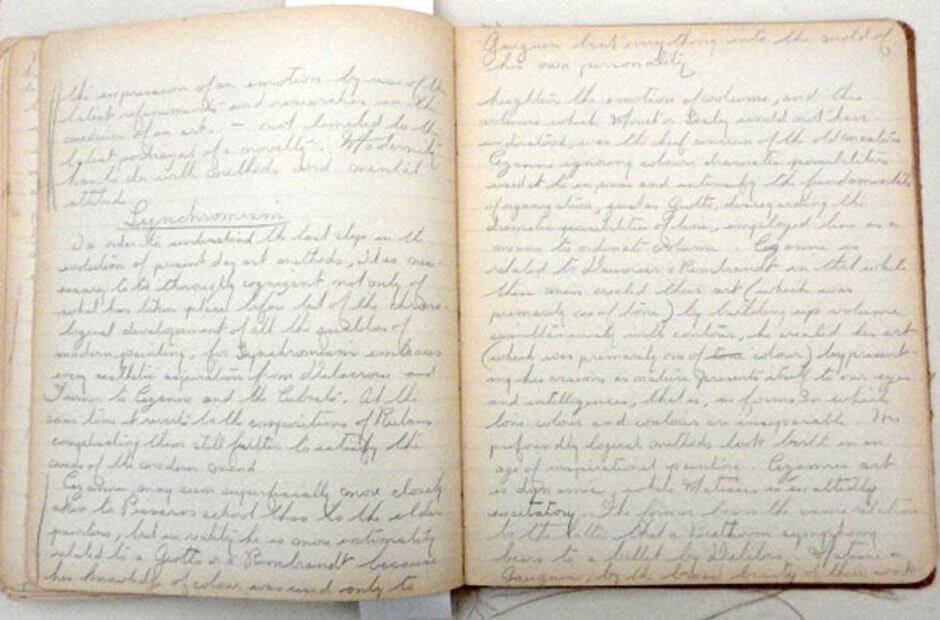 the expression of an emotion by use of the
latest refinements and researches in the
medium of an art. — not limited to the
latest portrayal of a novelty. Modernity
has to do with methods and mental
attitude
Synchromism
In order to understand the last step in the
evolution of present day art methods, it is nec-
essary to be thoroughly cognizant not only of
what has taken place before but of the chrono-
logical development of all the qualities of
modern painting, for Synchromism embraces
every aesthetic aspiration from Delacroix and
Turner to Cezanne and the Cubists. At the
same time it reverts to the compositions of Rubens
complicating them still further to satisfy the
needs of the modern mind
Cezanne may seem superficially more closely
akin to Pissaro's school than to the older
painters, but in reality he is more intimately
related to a Giotto or a Rembrandt because
his knowledge of colour was used only to
Gauguin beat everything into the mold of
his own personality
heighten the emotion of volume, and this
volume which Monet or Sisley would not have
understood, was the chief concern of the old masters
Cezanne ignoring colours dramatic possibilities
used it to express and intensify the fundamentals
of organization, just as Giotto, disregarding the
dramatic possibilities of line, employed line as a
means to ordinate volume. Cezanne is
related to Daumier & Rembrandt in that while
these men created their art (which was
primarily one of tone) by building up volume
simultaneously with contour, he created his art
(which was primarily one of tone colour) by present-
ing his visions as nature presents itself to our eyes
and intelligences, that is, as forms in which
tone colour and contour are inseparable. His
profoundly logical methods took built in an
age of inspirational painting. Cezanne's art
is dynamic, while Matisse's is exaltedly
excitatory. The former bears the same relation
to the latter that a Beethoven symphony
bears to a ballet by Delibes. Matisse &
Gauguin, by the broad beauty of their work